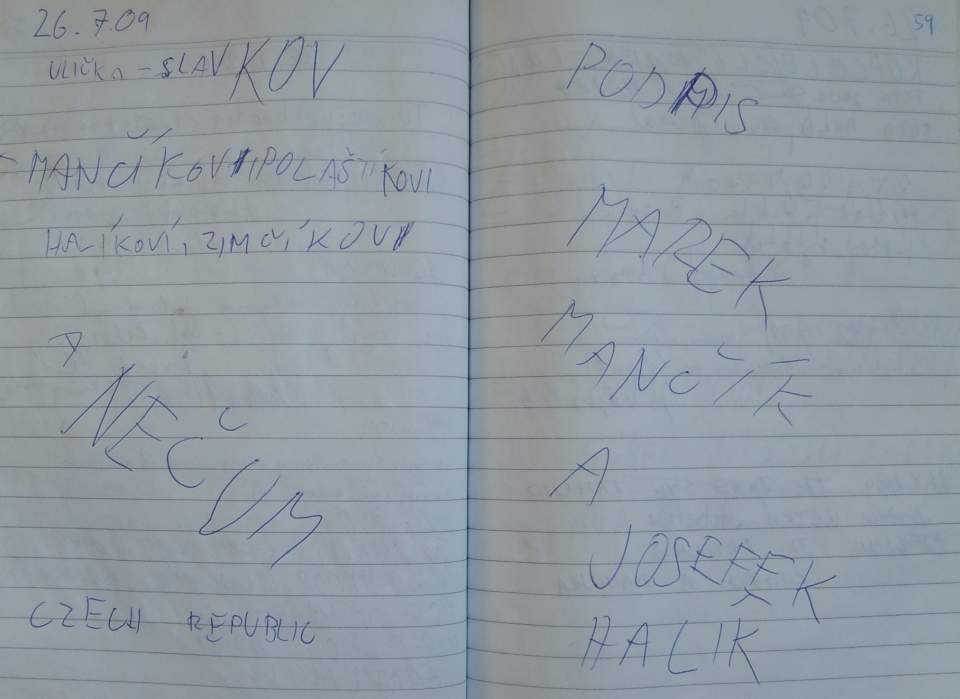 26.7.09
ULIČKA – SLAVKOV
MANČÍKOVI, POLAŠTÍKOVI
HALÍKOVÍ, ZIMČÍKOVI
A
NEČUM
CZECH REPUBLIC
59
PODPIS
MAREK
MANČÍK
A
JOSEFEK
HALIK